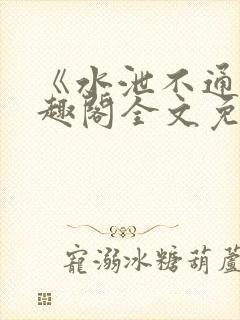 《水泄不通
趣阁全文免
宠溺冰糖葫芦